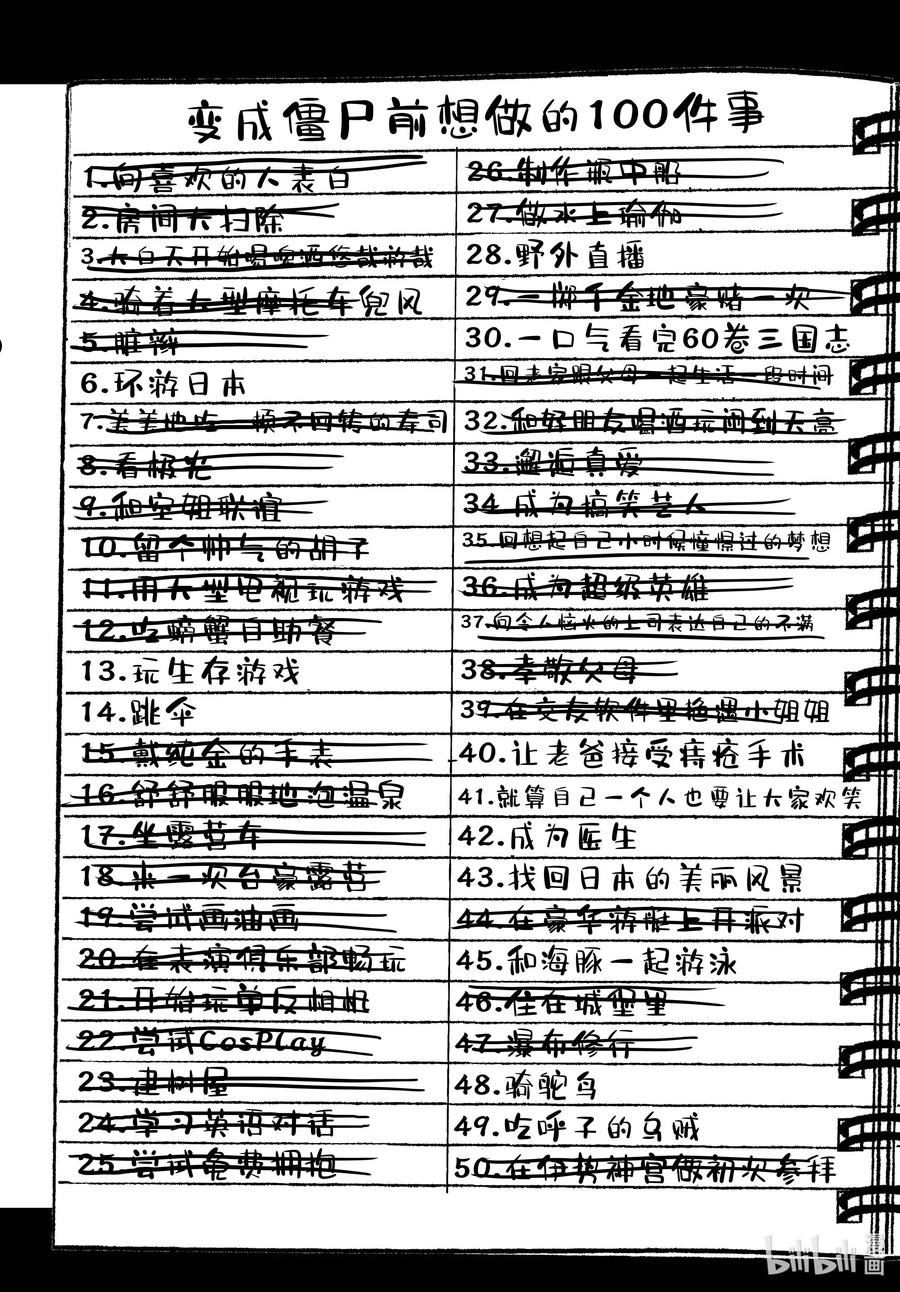 变成僵尸前想做的100件事
1.向喜欢的人表白
2.房间大扫除
3.大白天开始喝啤酒悠哉游哉
4.骑着大型摩托车兜风
5.脏辫
6.环游日本
7.美美地吃一顿不回转的寿司
8.看极光
9.和空姐联谊
10.留个帅气的胡子
11.用大型电视玩游戏
12.吃螃蟹自助餐
13.玩生存游戏
14.跳伞
15.戴纯金的手表
16.舒舒服服地泡温泉
17.坐露营车
18.来一次台豪露营
19.尝试画油画
20.在表演俱乐部畅玩
21.开始玩单反相机
22.尝试CosPlay
23.建树屋
24.学习英语对话
25.尝试免费拥抱
26.制作瓶中船
27.做水上瑜伽
28.野外直播
29.一掷千金地豪赌一次
30.一口气看完60卷三国志
31.回老家跟父母一起生活一段时间
32.和好朋友喝酒玩闹到天亮
33.邂逅真爱
34.成为搞笑艺人
35.回想起自己小时候憧憬过的梦想
36.成为超级英雄
37.向令人恼火的上司表达自己的不满
38.孝敬父母
39.在交友软件里艳遇小姐姐
40.让老爸接受痔疮手术
41.就算自己一个人也要让大家欢笑
42.成为医生
43.找回日本的美丽风景
44.在豪华游艇上开派对
45.和海豚一起游泳
46.住在城堡里
47.瀑布修行
48.骑鸵鸟
49.吃呼子的乌贼
50.在伊势神宫做初次参拜
bilibili漫画